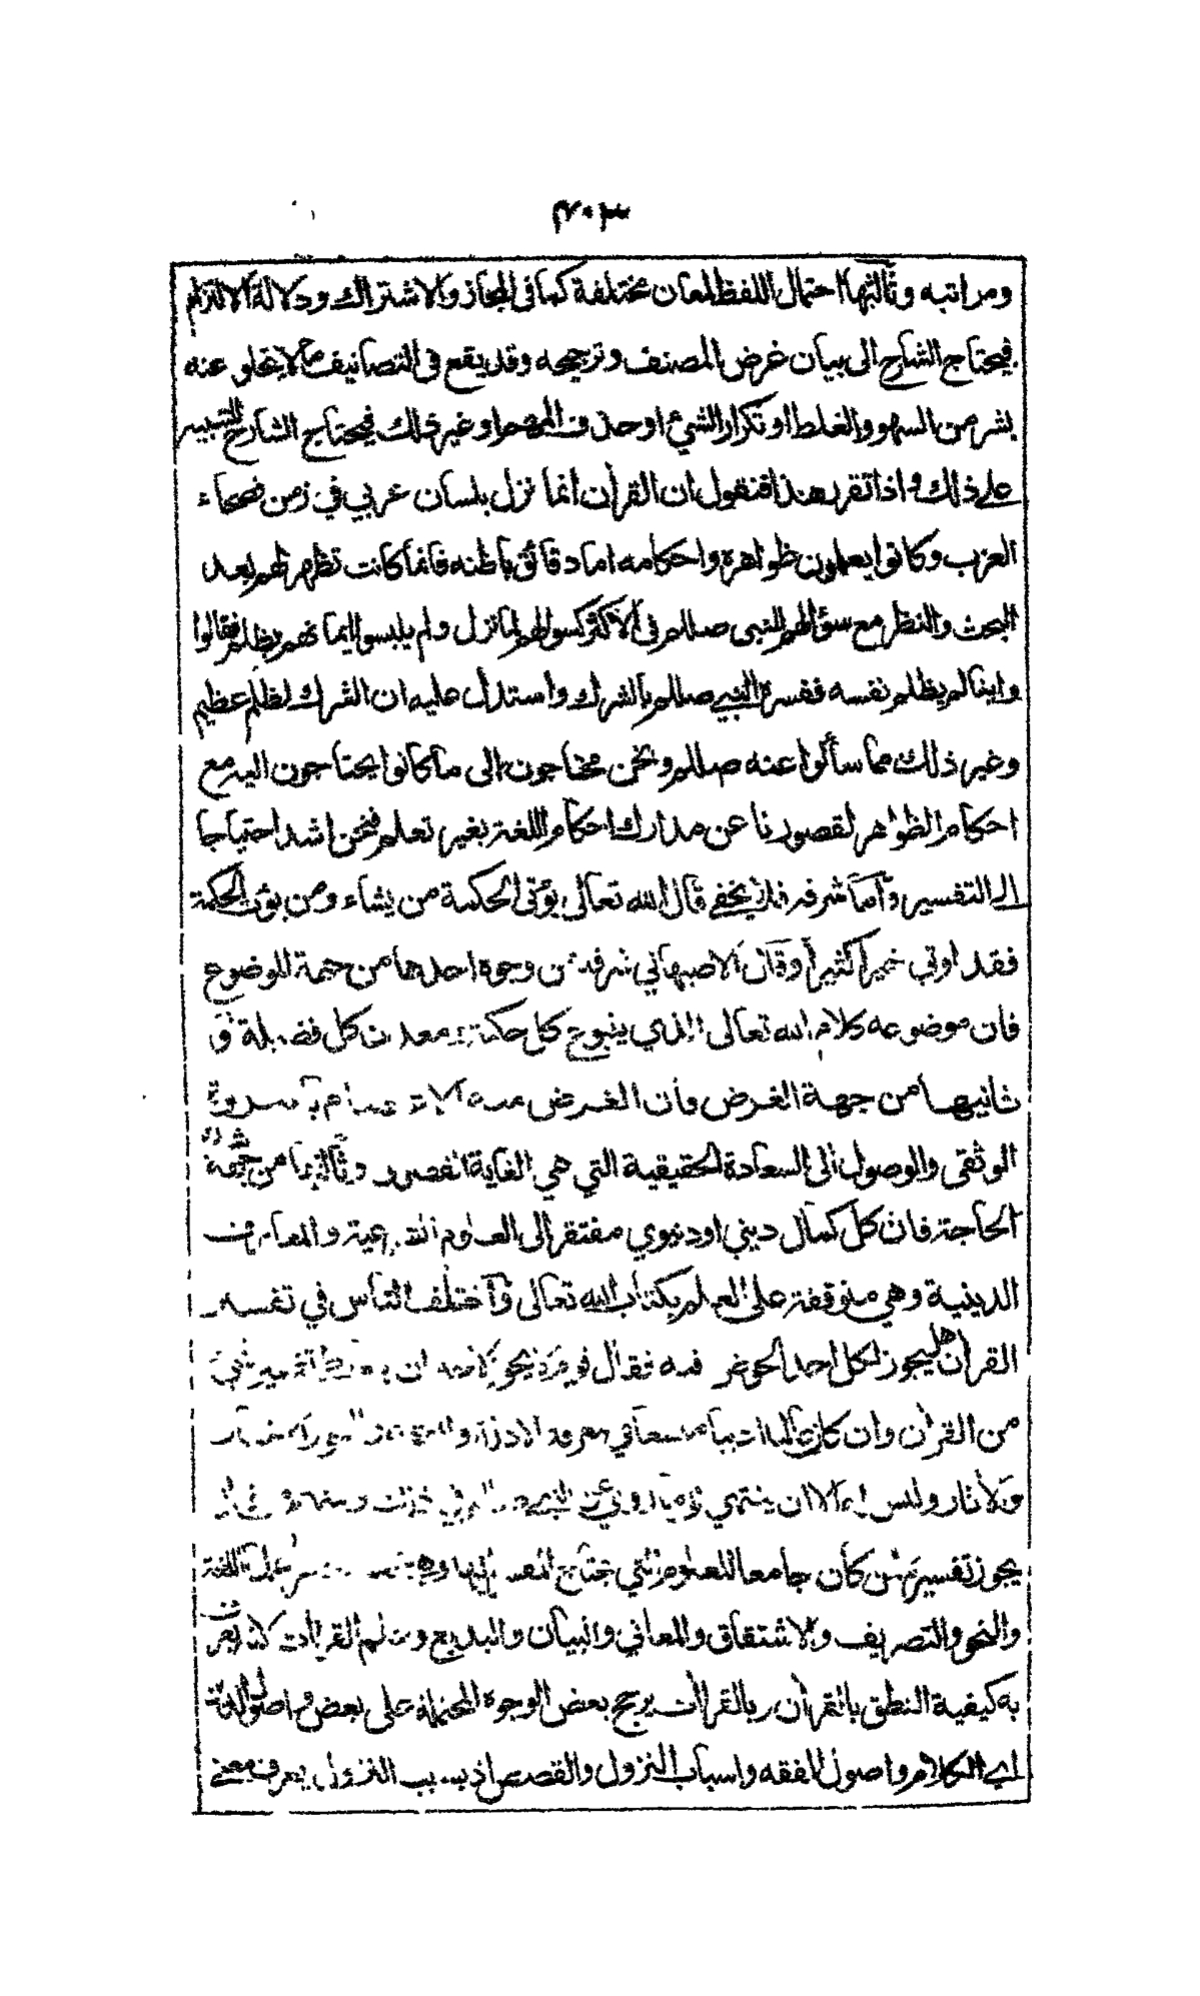 ٤٠٣
ومراتبه وثالثها احتمال اللفظ لمعان مختلفة كما في المجاز والاشتراك ودلالة الالتزام
فيحتاج الشارح الى بيان غرض المصنف وترجيحه وقد يقع في التصانيف ما لا يخلو عنه
بشر من السهو والغلط او تكرار الشيء او حذف المهم او غير ذلك فيحتاج الشارح للتنبيه
على ذلك واذا تقرر هذا فنقول ان القرآن انما نزل بلسان عربي في زمن فصحاء
العرب وكانوا يعلمون ظواهره واحكامه اما دقائق باطنه فانما كانت تظهر لهم بعد
البحث والنظر مع سؤالهم للنبي صللم في الاكثر كسؤالهم لما نزل ولم يلبسوا ايمانهم بظلم فقالوا
واينا لم يظلم نفسه ففسره النبي صللم بالشرك واستدل عليه ان الشرك لظلم عظيم
وغير ذلك مما سألوا عنه صللم ونحن محتاجون الى ما كانوا يحتاجون اليه مع
احكام الظواهر لقصورنا عن مدارك احكام اللغة بغير تعلم فنحن اشد احتياجا
الى التفسير واما شرفه فلا يخفى قال الله تعالى يؤتي الحكمة من يشاء ومن يؤت الحكمة
فقد اوتي خيرا كثيرا وقال الاصبهاني شرفه من وجوه احدها من جهة الموضوع
فان موضوعه كلام الله تعالى الذي ينبوع كل حكمة ومعدن كل فضيلة و
ثانيها من جهة الغرض فان الغرض منه الاعتصام بالعروة
الوثقى والوصول الى السعادة الحقيقية التي هي الغاية القصوى وثالثها من جهة شدة
الحاجة فان كل كمال ديني او دنيوي مفتقر الى العلوم الشرعية والمعارف
الدينية وهي متوقفة على العلم بكتاب الله تعالى واختلف الناس في تفسير
القرآن هل يجوز لكل احد الخوض فيه فقال قوم لا يجوز لاحد ان تفسير شيء
من القرآن وان كان عالما اديبا متسعا في معرفة الادلة والفقه والنحو والاخبار
والاثار وليس له الا ان ينتهي الى ما روي عن النبي صللم في ذلك ومنهم من قال
يجوز تفسيره لمن كان جامعا للعلوم التي يحتاج المفسر اليها وهي خمسة عشر علما اللغة
والنحو والتصريف والاشتقاق والمعاني والبيان والبديع وعلم القراآت لانه يعرف
به كيفية النطق بالقرآن وبالقراآت يرجح بعض الوجوه المحتملة على بعض واصول الدين
اي الكلام واصول الفقه واسباب النزول والقصص اذ بسبب النزول يعرف معنى